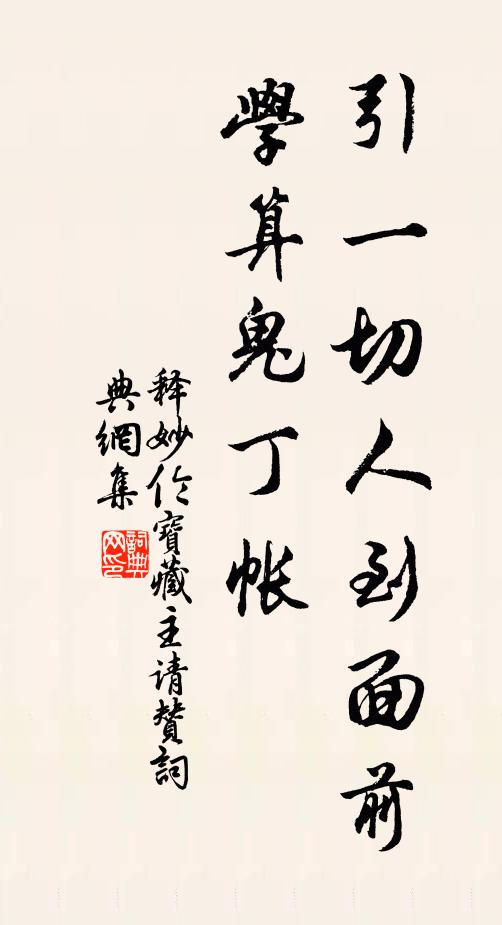 引一切人到面前
學算鬼丁帳
释妙伦寶藏主请贊詞
典網集
詞典
网印